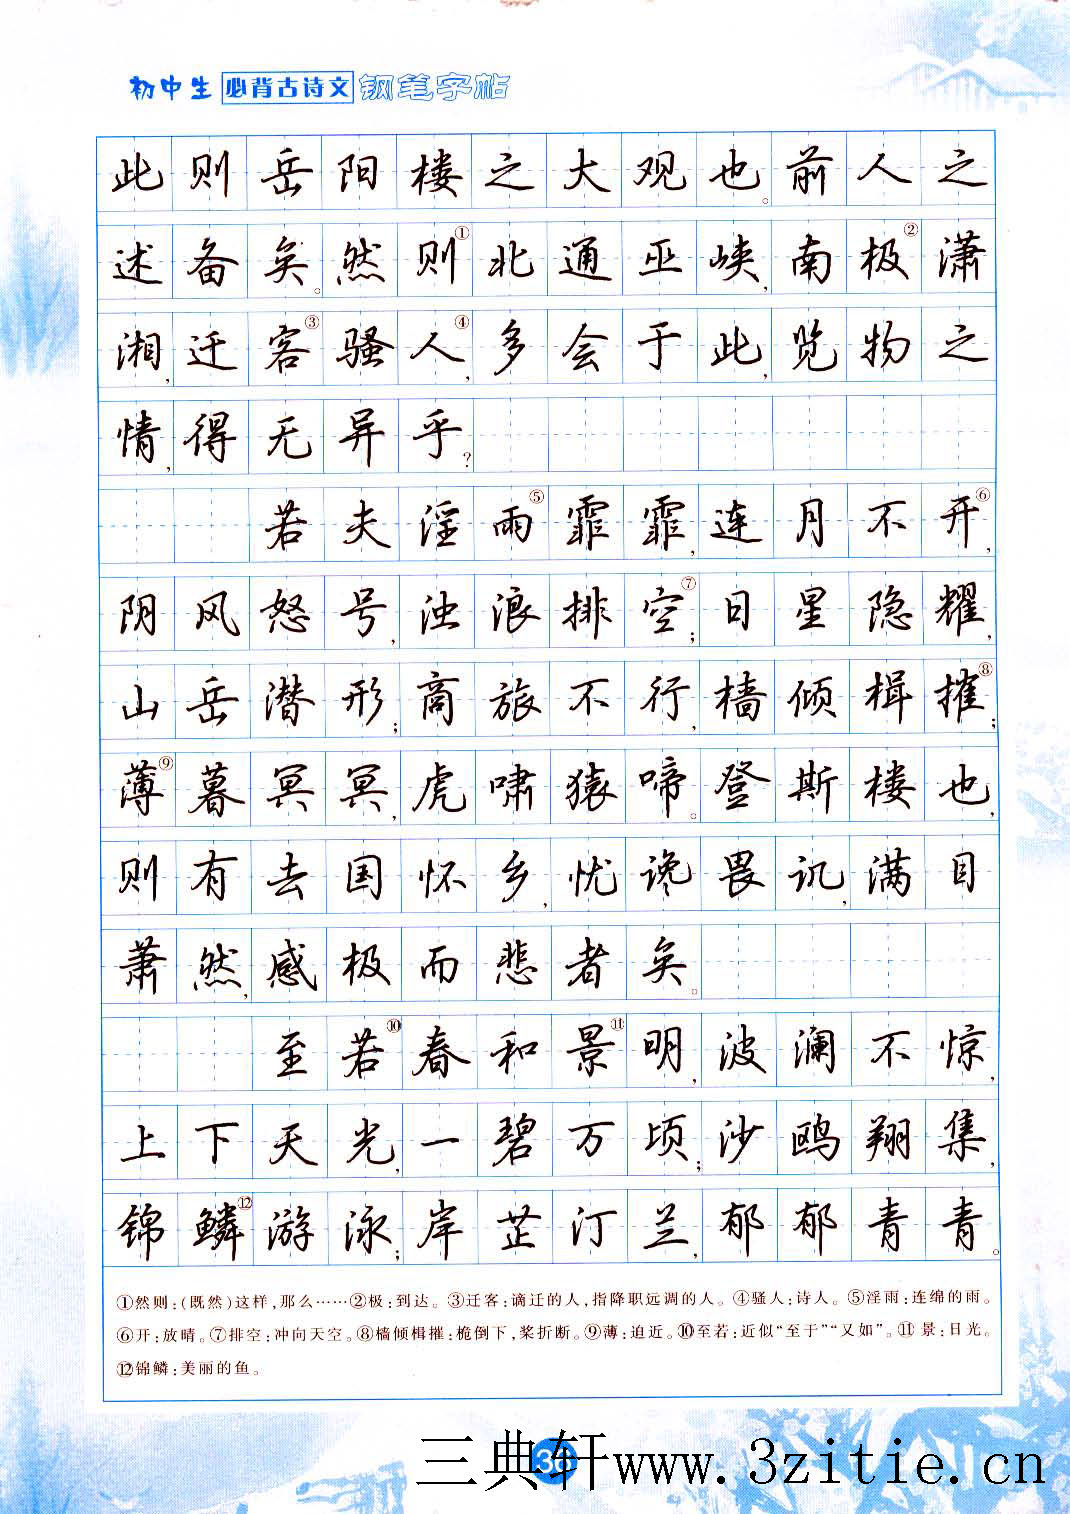 初中生 必背古诗文 钢笔字帖
此则岳阳楼之大观也。前人之
述备矣。然则①北通巫峡,南极②潇
湘,迁客③骚人④,多会于此,览物之
情,得无异乎?
若夫淫雨⑤霏霏,连月不开⑥,
阴风怒号,浊浪排空⑦;日星隐耀,
山岳潜形;商旅不行,樯倾楫摧⑧;
薄⑨暮冥冥,虎啸猿啼。登斯楼也,
则有去国怀乡,忧谗畏讥,满目
萧然,感极而悲者矣。
至若⑩春和景⑪明,波澜不惊,
上下天光,一碧万顷;沙鸥翔集,
锦鳞⑫游泳;岸芷汀兰,郁郁青青。
①然则:(既然)这样,那么……②极:到达。③迁客:谪迁的人,指降职远调的人。④骚人:诗人。⑤淫雨:连绵的雨。
⑥开:放晴。⑦排空:冲向天空。⑧樯倾楫摧:桅倒下,桨折断。⑨薄:迫近。⑩至若:近似“至于”“又如”。⑪景:日光。
⑫锦鳞:美丽的鱼。
三典轩www.3zitie.cn